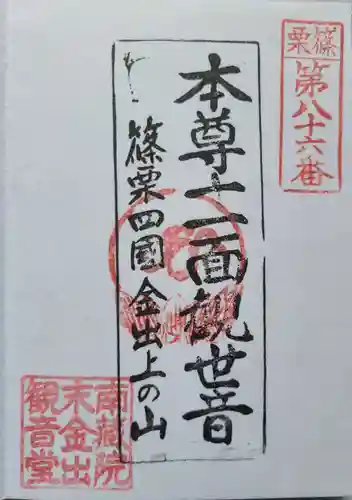 篠栗
第八十六番
本尊十一面観世音
篠栗四國 金出上の山
南蔵院
末金出
観音堂